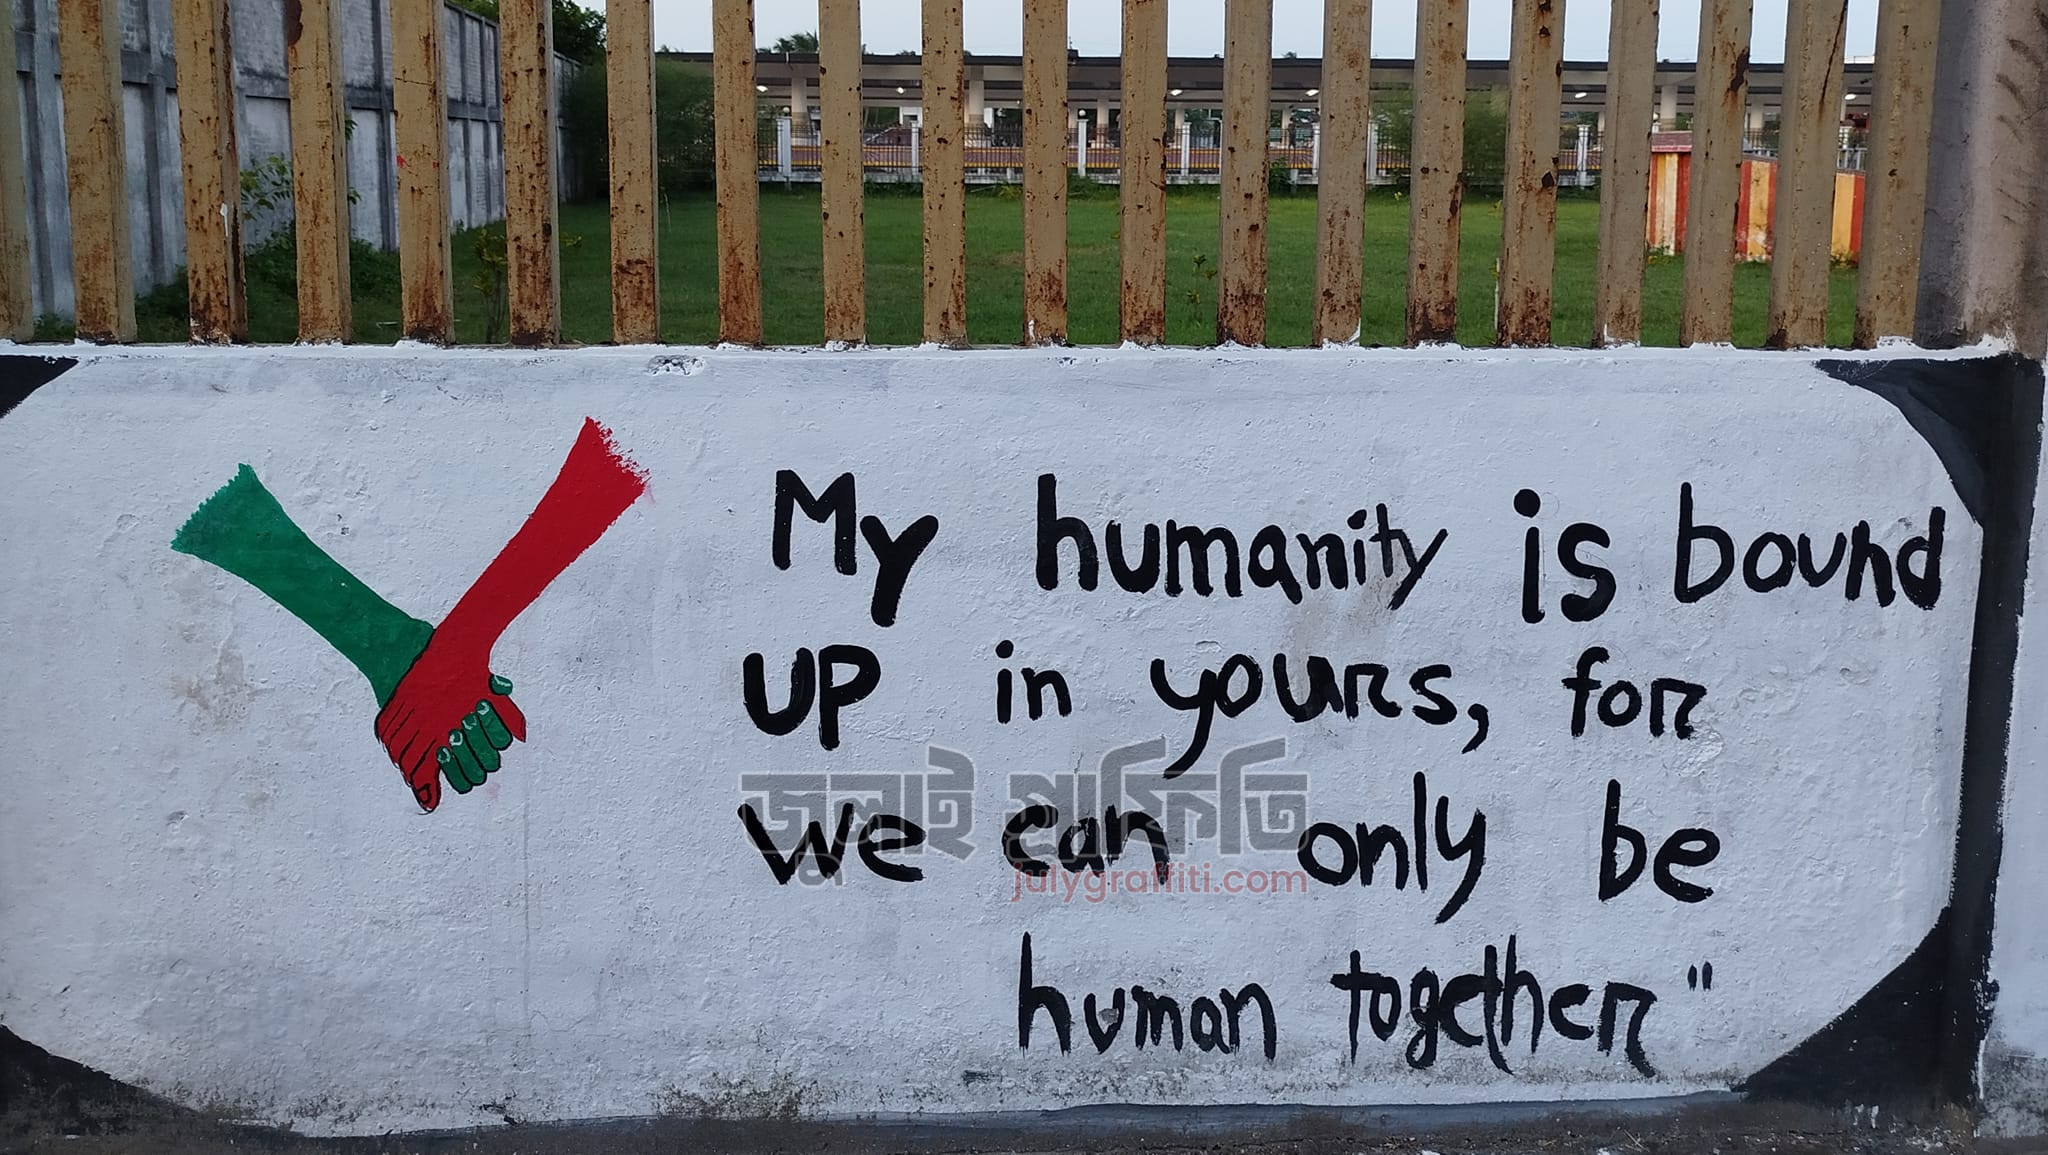 My humanity is bound
up in yours, for
we can only be
human together"
জুলাই গ্রাফিতি
julygraffiti.com